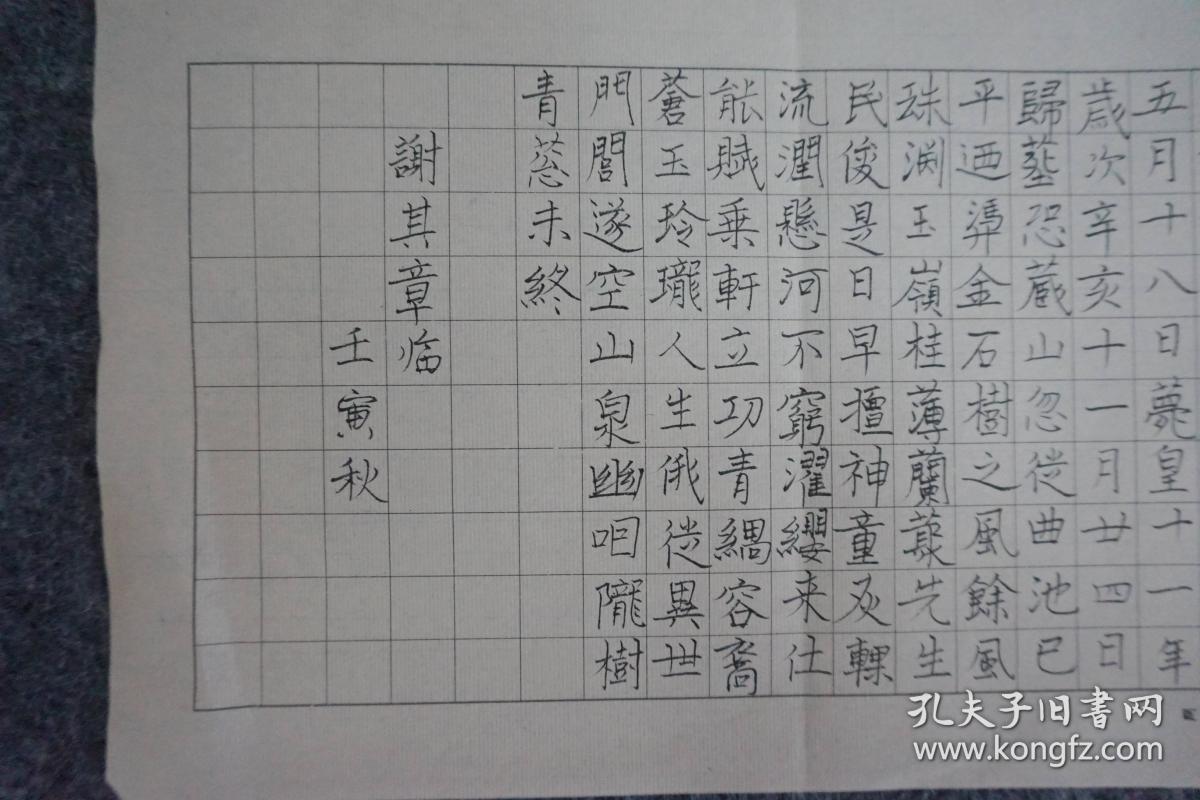 五月十八日薨皇十一年
歲次辛亥十一月廿四日
歸葬恐蔵山忽從曲池已
平迺金石樹之風餘風
珠渕玉嶺桂薄蘭叢先生
民俊是日早擅神童炙輠
流潤懸河不窮濯纓来仕
能賦乗軒立功青緺容裔
蒼玉玲瓏人生俄從異世
門閭遂空山泉幽咽隴樹
青葱未終
謝其章临
壬寅秋
孔夫子旧書网
www.kongfz.com